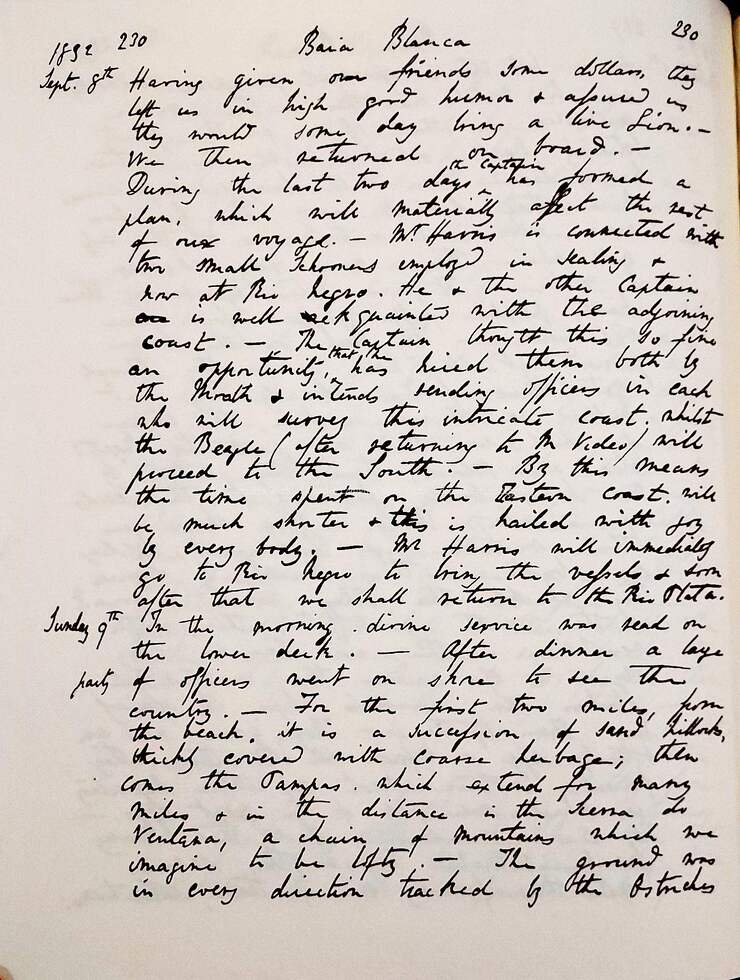 230
1832 230 Baia Blanca
Sept. 8th Having given our friends some dollars, they
left us in high good humor & assured us
they would some day bring a live Lion. —
We then returned on board. —
the Captain
During the last two days ‸ has formed a
plan, which will materially affect the rest
of our voyage. — Mr Harris is connected with
two small Schooners employed in sealing &
now at Rio Negro. He & the other Captain
is well acquainted with the adjoining
coast. — The Captain thought this so fine
that he
an opportunity, ‸ has hired them both by
the Month & intends sending officers in each
who will survey this intricate coast, whilst
the Beagle (after returning to M Video) will
proceed to the South. — By this means
the time spent on the Eastern coast, will
be much shorter & this is hailed with joy
by every body. — Mr Harris will immediately
go to Rio Negro to bring the vessels & soon
after that we shall return to the Rio Plata.
Sunday 9th In the morning divine service was read on
the lower deck. — After dinner a large
party of officers went on shore to see the
country. — For the first two miles, from
the beach, it is a succession of sand hillocks,
thickly covered with coarse herbage; then
comes the Pampas, which extend for many
miles & in the distance is the Sierra de
Ventana, a chain of mountains which we
imagine to be lofty. — The ground was
in every direction tracked by the Ostriches